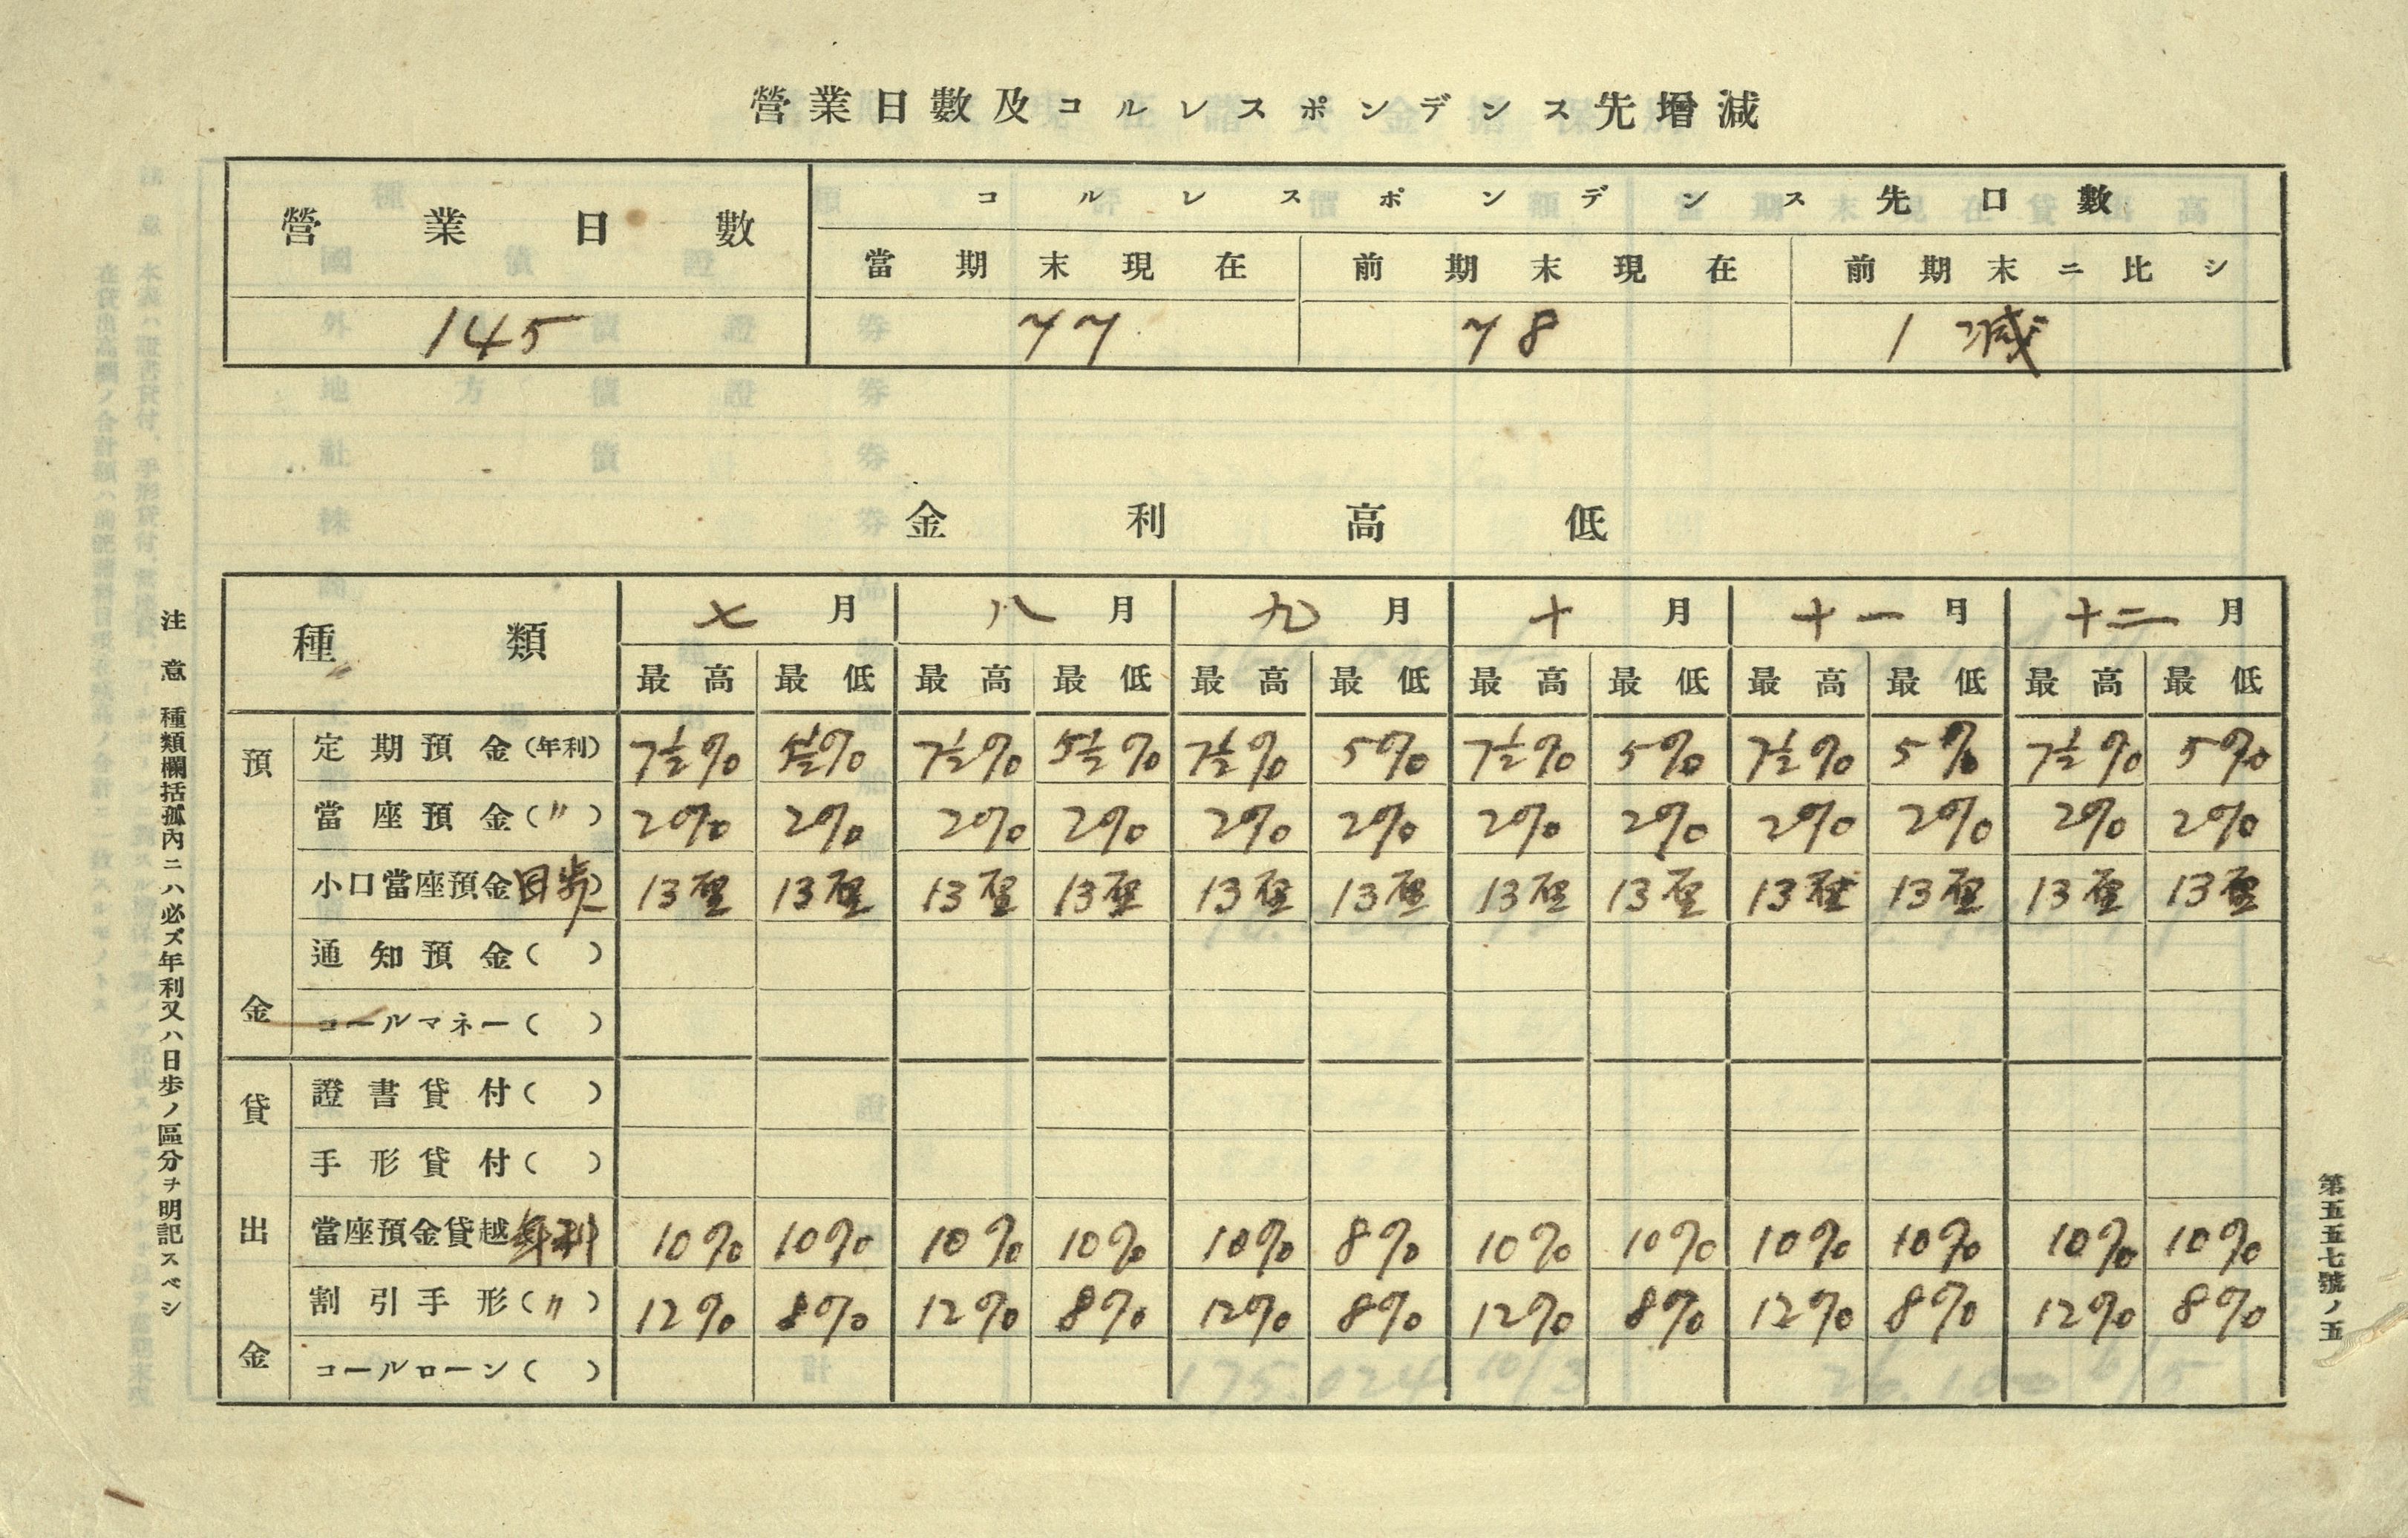 營業日數及コルレスポンデンス先增減
營業日數
コルレスポンデンス先口數
當期末現在 前期末現在 前期末ニ比シ
145 77 78 1 減
金利高低
種類 七月 八月 九月 十月 十一月 十二月
最高 最低 最高 最低 最高 最低 最高 最低 最高 最低 最高 最低
預金
定期預金(年利) 7½% 5½% 7½% 5½% 7½% 5% 7½% 5% 7½% 5% 7½% 5%
當座預金(〃) 2% 2% 2% 2% 2% 2% 2% 2% 2% 2% 2% 2%
小口當座預金(日歩) 13厘 13厘 13厘 13厘 13厘 13厘 13厘 13厘 13厘 13厘 13厘 13厘
通知預金( )
コールマネー( )
貸出金
證書貸付( )
手形貸付( )
當座預金貸越(年利) 10% 10% 10% 10% 10% 8% 10% 10% 10% 10% 10% 10%
割引手形(〃) 12% 8% 12% 8% 12% 8% 12% 8% 12% 8% 12% 8%
コールローン( )
注意 種類欄括孤內ニハ必ズ年利又ハ日歩ノ區分ヲ明記スベシ
第五五七號ノ五